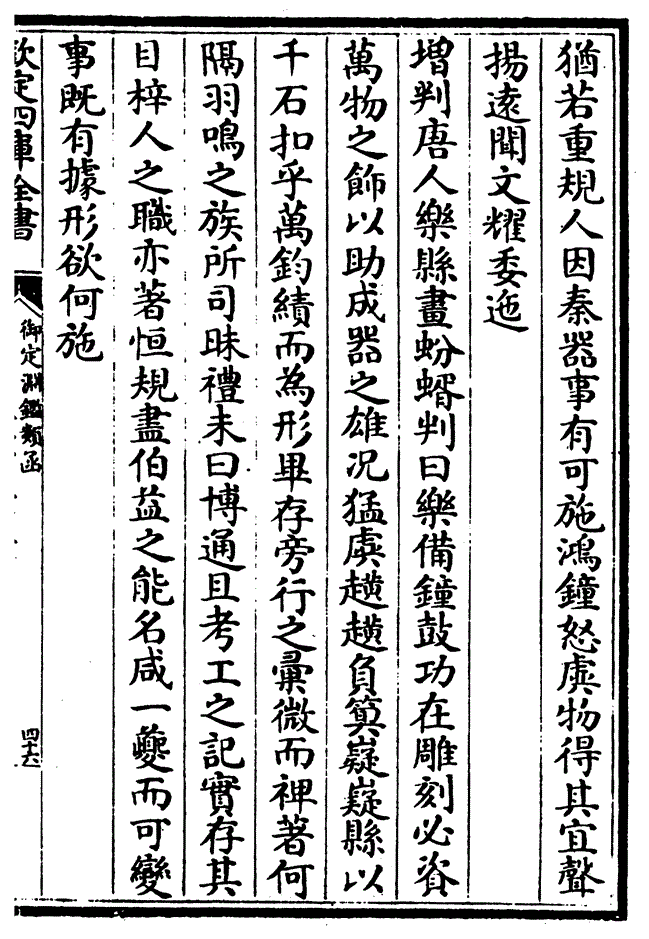 猶若重規人因秦器事有可施鴻鐘怒虡物得其宜聲
揚遠聞文耀委迤
増判唐人樂縣畫蚡蝑判曰樂備鐘鼓功在雕刻必資
萬物之飾以助成器之雄况猛虡趪趪負筍嶷嶷縣以
千石扣乎萬鈞績而為形畢存旁行之彚微而裨著何
隔羽鳴之族所司昧禮未曰博通且考工之記實存其
目梓人之職亦著恒規盡伯益之能名咸一䕫而可變
事既有據形欲何施
欽定四庫全書
御定淵鑑類函
四十六